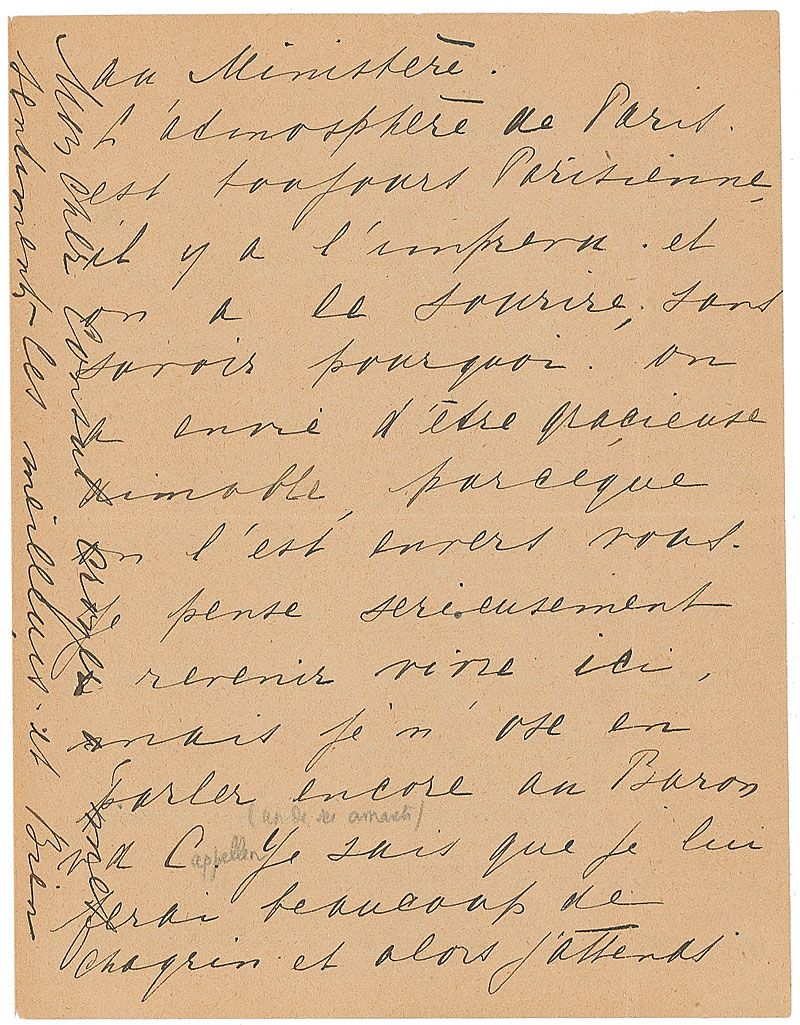 au Ministère.
L'atmosphère de Paris.
est toujours Parisienne,
il y a l'imprevu. et
on a le sourire, sans
savoir pourquoi. on
a envie d'être gracieuse
aimable, parceque
on l'est envers vous.
Je pense serieusement
a revenir vivre ici,
mais je n'ose en
parler encore au Baron
(un de ses amants)
v d C Je sais que je lui
appellen
ferai beaucoup de
chagrin. et alors j'attends
Mon cher Consul croyez a mes
sentiments les meilleurs. et Bien